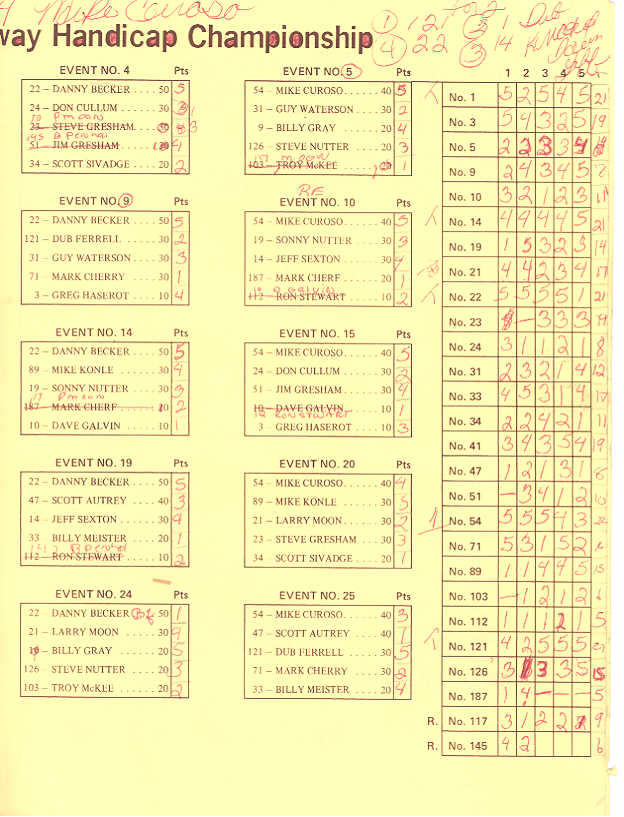 Mike Curoso
way Handicap Championship
① 121
④ 22
③ 14
Dub
EVENT NO. 4 Pts
22 – DANNY BECKER .... 50 5
24 – DON CULLUM ..... 30 3
P moon
23 – STEVE GRESHAM 30
51 – JIM GRESHAM 4
34 – SCOTT SIVADGE .... 20 2
EVENT NO. 5 Pts
54 – MIKE CUROSO ..... 40 5
31 – GUY WATERSON .... 30 2
9 – BILLY GRAY ...... 20 4
126 – STEVE NUTTER ..... 20 3
moon
103 – TROY McKEE 20 1
EVENT NO. 9 Pts
22 – DANNY BECKER .... 50 5
121 – DUB FERRELL ..... 30 2
31 – GUY WATERSON .... 30 3
71 – MARK CHERRY ..... 30 1
3 – GREG HASEROT .... 10 4
RE
EVENT NO. 10 Pts
54 – MIKE CUROSO ..... 40 5
19 – SONNY NUTTER .... 30 3
14 – JEFF SEXTON ...... 30 4
187 – MARK CHERF ...... 20 1
D galvin
112 – RON STEWART ..... 10 2
EVENT NO. 14 Pts
22 – DANNY BECKER .... 50 5
89 – MIKE KONLE ...... 30 4
19 – SONNY NUTTER .... 30 3
P moon
187 – MARK CHERF 20 2
10 – DAVE GALVIN ..... 10 1
EVENT NO. 15 Pts
54 – MIKE CUROSO ..... 40 5
24 – DON CULLUM ...... 30 2
51 – JIM GRESHAM ...... 30 4
10 – DAVE GALVIN ..... 10 1
RON STEWART
3 GREG HASEROT .... 10 3
EVENT NO. 19 Pts
22 – DANNY BECKER .... 50 5
47 – SCOTT AUTREY .... 40 3
14 – JEFF SEXTON ...... 30 4
33 BILLY MEISTER .... 20 1
112 – RON STEWART ..... 10 2
EVENT NO. 20 Pts
54 – MIKE CUROSO ..... 40 4
89 – MIKE KONLE ...... 30 5
21 – LARRY MOON ...... 30 2
23 – STEVE GRESHAM ... 30 3
34 SCOTT SIVADGE .... 20 1
EVENT NO. 24 Pts
22 DANNY BECKER 50 1
21 – LARRY MOON ..... 30 4
BILLY GRAY ...... 20 5
126 – STEVE NUTTER .... 20 3
103 – TROY McKEE ...... 20 2
EVENT NO. 25 Pts
54 – MIKE CUROSO ..... 40 3
47 – SCOTT AUTREY .... 40 1
121 – DUB FERRELL ..... 30 5
71 – MARK CHERRY ..... 30 2
33 – BILLY MEISTER .... 20 4
1 2 3 4 5
No. 1 5 2 5 4 5 21
No. 3 5 4 3 2 5 19
No. 5 2 2 3 3 4
No. 9 2 4 3 4 5
No. 10 3 2 1 2 3 11
No. 14 4 4 4 4 5 21
No. 19 1 5 3 2 3 14
No. 21 4 4 2 3 4 17
No. 22 5 5 5 5 1 21
No. 23 – 3 3 3
No. 24 3 1 1 2 1 8
No. 31 2 3 2 1 4 12
No. 33 4 5 3 1 4 17
No. 34 2 2 4 2 1 11
No. 41 3 4 3 5 4 19
No. 47 1 2 1 3 1
No. 51 – 3 4 1 2 10
No. 54 5 5 5 4 3
No. 71 5 3 1 5 2
No. 89 1 1 4 4 5 15
No. 103 – 1 2 1 2 6
No. 112 1 1 1 2 1 5
No. 121 4 2 5 5 5 21
No. 126 3 3 3 5 15
No. 187 1 4 – – – 5
R. No. 117 3 1 2 2 9
R. No. 145 4 2 6